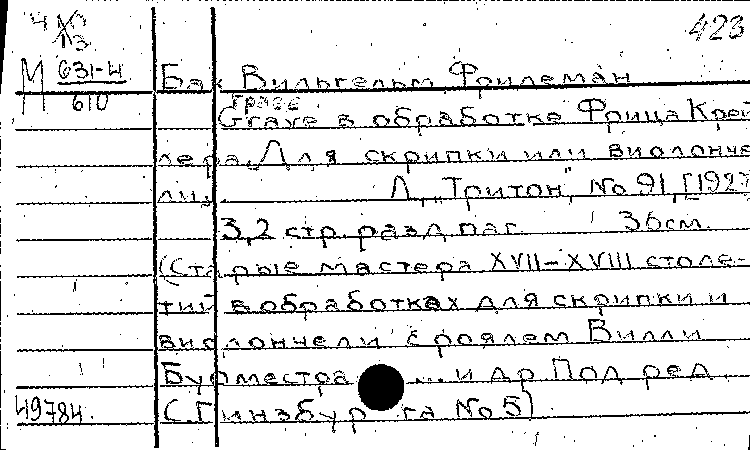 423
М 631-4
610
Бах Вильгельм Фридеман
Граве
Grave в обработке Фрица Крей
лера. Для скрипки или виолонче
ли. Л., "Тритон", No 91, [1927
3,2 стр. разд. паг. 36см.
(Старые мастера XVII-XVIII столе-
тий в обработках для скрипки и
виолончели с роялем Вилли
Бурместра ... и др. Под ред.
49784. С. Гинзбурга No 5)